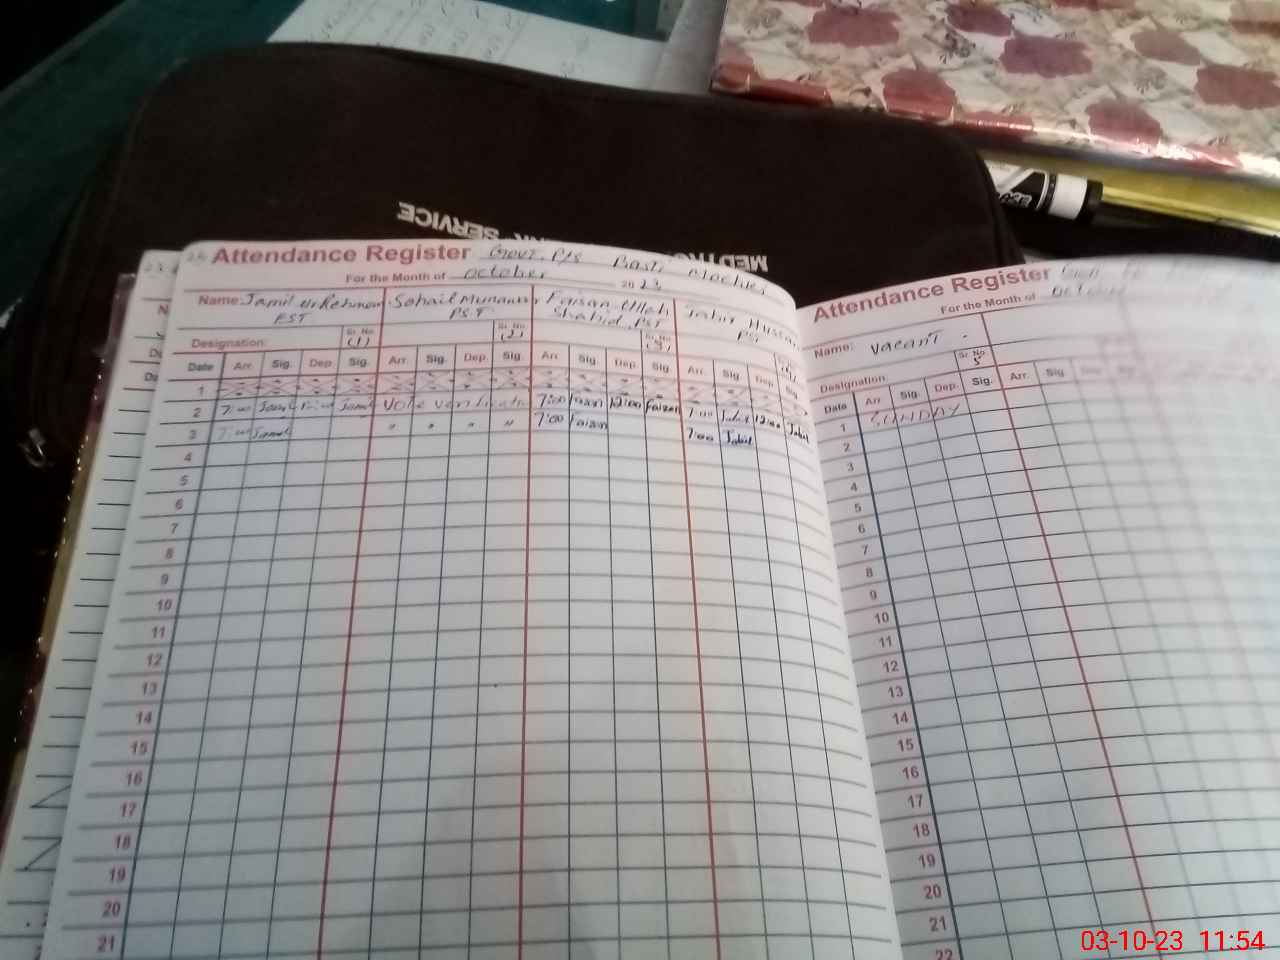 MEDTRONIC SERVICE
Attendance Register Govt. P/s Basti Mochies
For the Month of October 2023
Name: Jamil ur Rehman Sohail Munawar Faizan Ullah Shahid Jabir Hussain
EST PST PST PST
Designation: Sr. No. (1) Sr. No. (2) Sr. No. (3) Sr. No.
Date Arr. Sig. Dep. Sig. Arr. Sig. Dep. Sig. Arr Sig. Dep. Sig. Arr. Sig Dep Sig.
1
2 7:00 Jamil Jamil Vote verification 7:00 Faizan 12:00 Faizan 7:00 Jabir 12:00 Jabir
3 7:00 Jamil " " " " 7:00 Faizan 7:00 Jabir
4
5
6
7
8
9
10
11
12
13
14
15
16
17
18
19
20
21
Attendance Register
For the Month of October
Name: Vacant -
Designation Sr. No. 5
Date Arr. Sig. Dep. Sig. Arr. Sig
1 SUNDAY
2
3
4
5
6
7
8
9
10
11
12
13
14
15
16
17
18
19
20
21
22
03-10-23 11:54